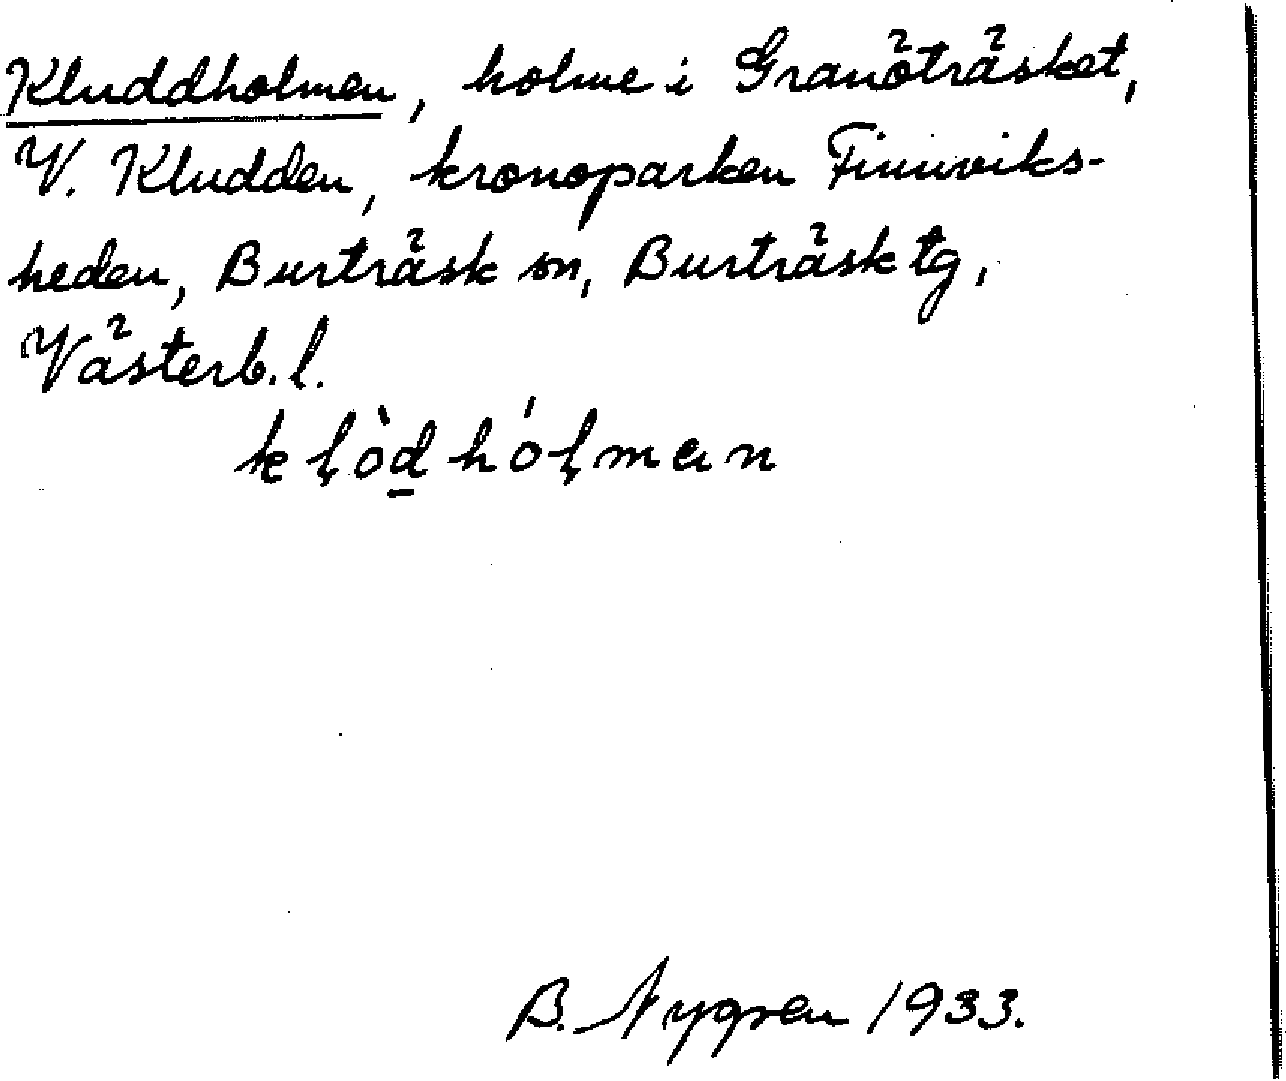 Kluddholmen, holme i Granöträsket,
V. Kludden, kronoparken Finnviks-
heden, Burträsk sn, Burträsk tg,
Västerb. l.
kl̥òd̲hól̥man
B. Nygren 1933.